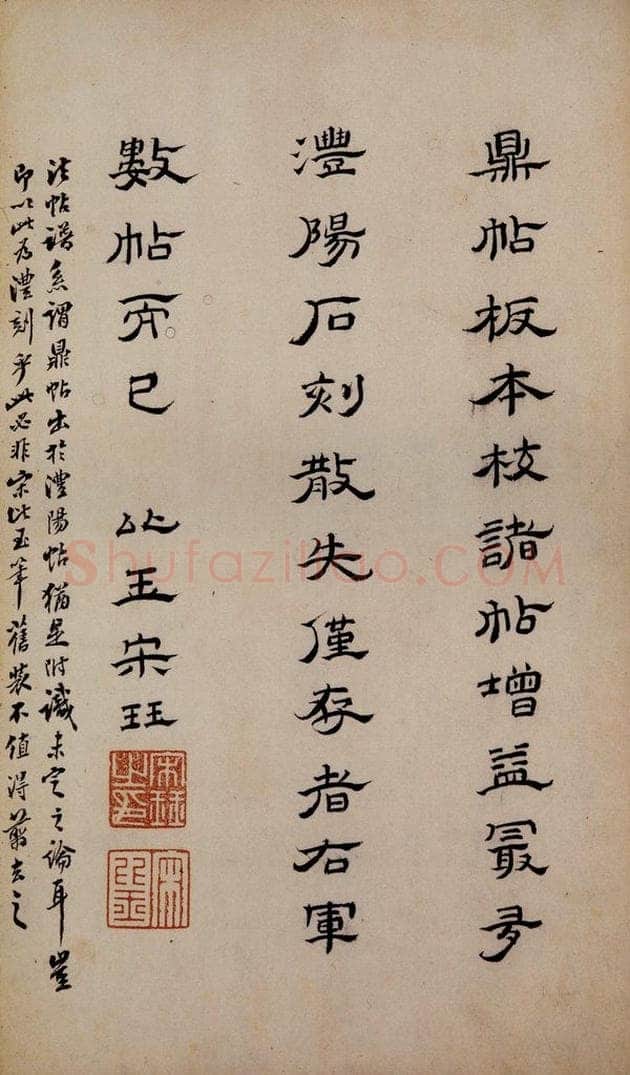 鼎帖板本枝諸帖增益冣多
澧陽石刻散失僅存者右軍
數帖而已 比玉宋珏
法帖譜系謂鼎帖出於澧陽帖猶是附識未定之論耳豈
即以此為澧刻乎此必非宋比玉筆舊裝不值得蕭去之
Shufaziliao.COM